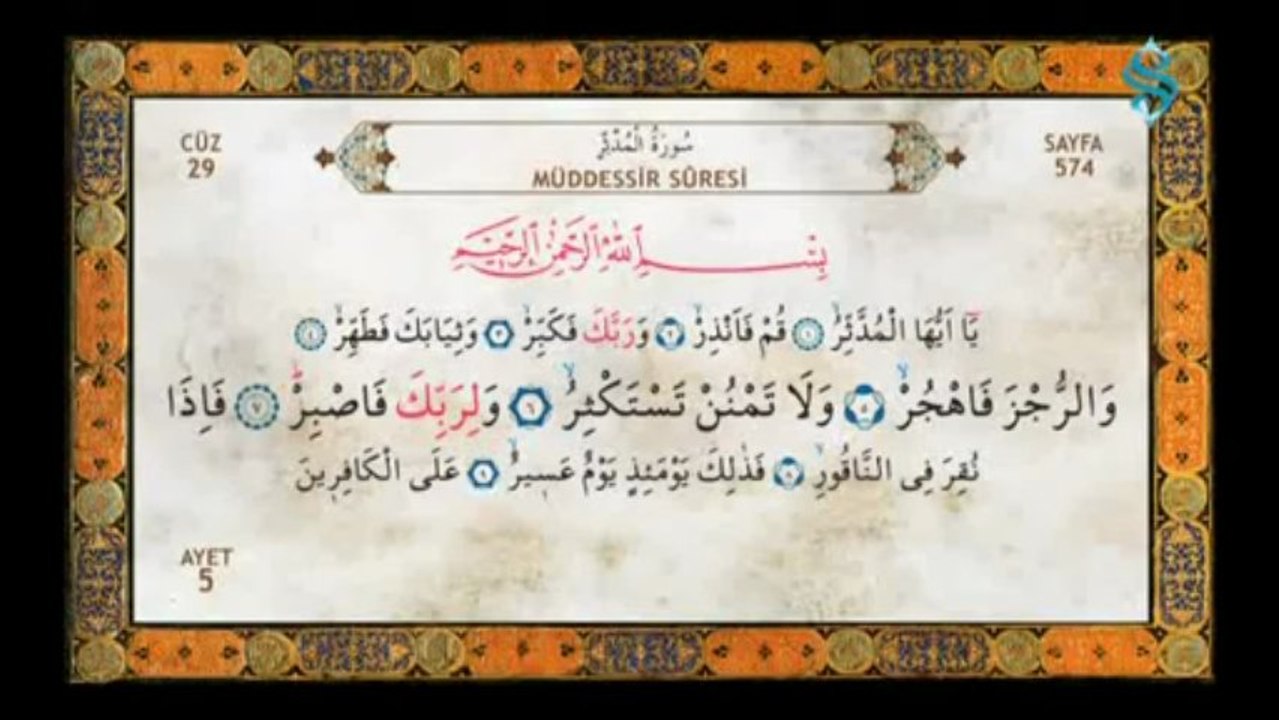 CÜZ
29
سُورَةُ الْمُدَّثِّرِ
MÜDDESSİR SÛRESİ
SAYFA
574
بِسْــــــمِ اللّٰهِ الرَّحْمٰنِ الرَّحِيمِ
يَٓا اَيُّهَا الْمُدَّثِّرُۙ ﴿١﴾ قُمْ فَاَنْذِرْۙ ﴿٢﴾ وَرَبَّكَ فَكَبِّرْۙ ﴿٣﴾ وَثِيَابَكَ فَطَهِّرْۙ ﴿٤﴾
وَالرُّجْزَ فَاهْجُرْۙ ﴿٥﴾ وَلَا تَمْنُنْ تَسْتَكْثِرُۙ ﴿٦﴾ وَلِرَبِّكَ فَاصْبِرْۜ ﴿٧﴾ فَاِذَا
نُقِرَ فِى النَّاقُورِۙ ﴿٨﴾ فَذٰلِكَ يَوْمَئِذٍ يَوْمٌ عَسِيرٌۙ ﴿٩﴾ عَلَى الْكَافِرِينَ
AYET
5